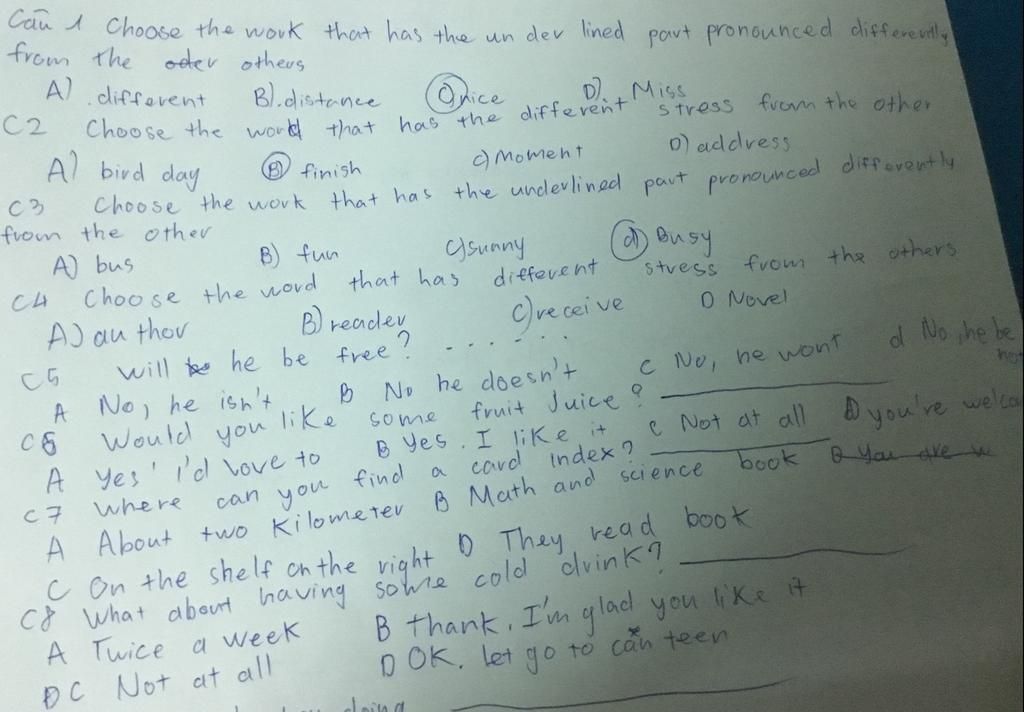 Câu 1 Choose the work that has the un der lined part pronounced differently
from the oder others
A) .different B).distance C) nice D). Miss
C2 Choose the word that has the different stress from the other
A) bird day B) finish C) Moment D) address
C3 Choose the work that has the underlined part pronounced differently
from the other
A) bus B) fun C) sunny d) Busy
C4 Choose the word that has different stress from the others
A) au thor B) reader C) receive D Novel
C5 will be he be free? . . . . . .
A No, he isn't B No he doesn't C No, he wont d No, he be not
C6 Would you like some fruit Juice?
A Yes' I'd love to B Yes. I like it C Not at all D you're welcom
C7 Where can you find a card index?
A About two Kilometer B Math and science book D You are w
C On the shelf on the right D They read book
C8 What about having some cold drink?
A Twice a week B thank. I'm glad you like it
D C Not at all D OK. let go to can teen
doing